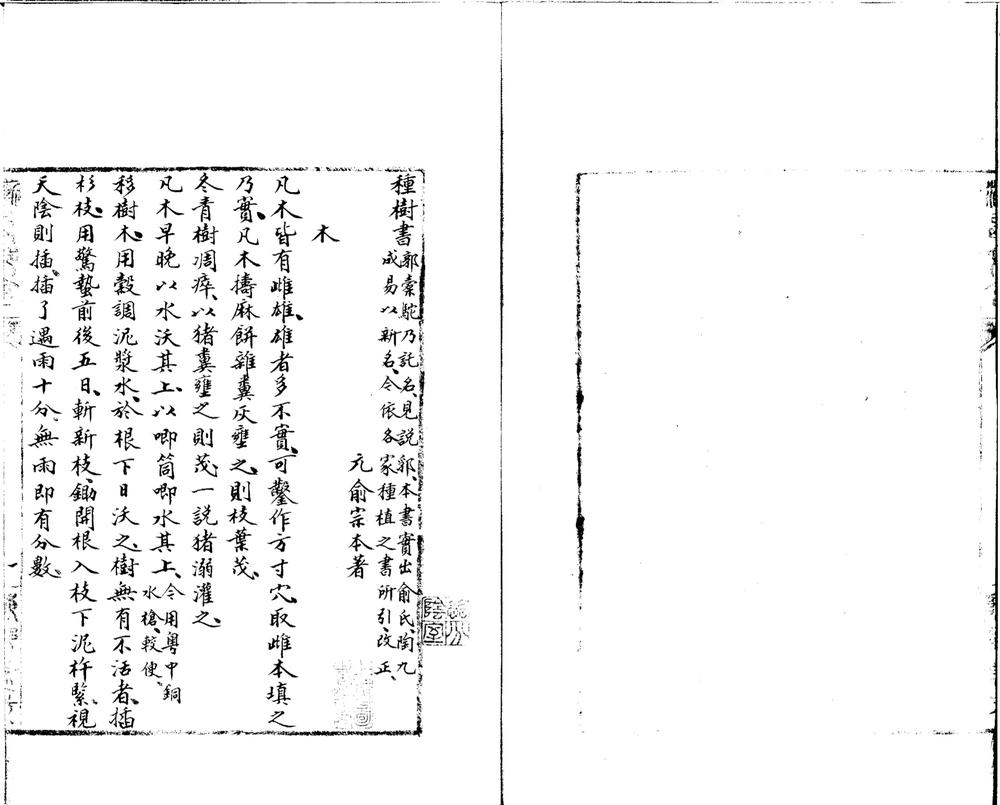 種樹書郭橐駝乃託名、見說郛、本書實出俞氏、陶九
成易以新名、今依各家種植之書所引、改正、
元俞宗本著
木
凡木皆有雌雄、雄者多不實、可鑿作方寸穴、取雌木填之
乃實、凡木擣麻餅雜糞灰壅之、則枝葉茂、
冬青樹凋瘁、以猪糞壅之則茂、一説猪溺灌之、
凡木早晚以水沃其上、以唧筒唧水其上、今用粤中銅
水槍、較便、
移樹木、用穀調泥漿水、於根下日沃之、樹無有不活者、插
杉枝、用驚蟄前後五日、斬新枝、鋤開根入枝下泥杵緊、視
天陰則插、插了遇雨十分、無雨即有分數、